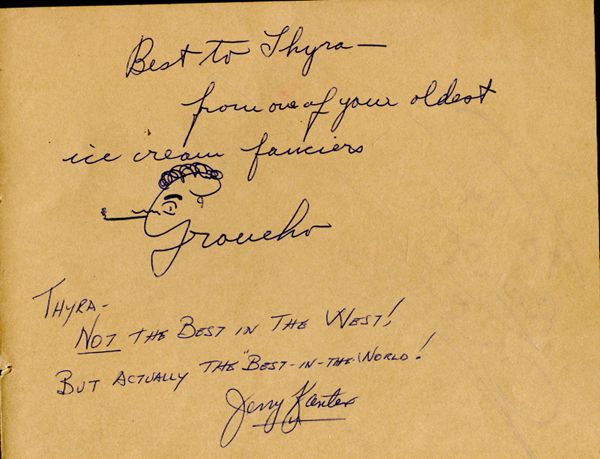 Best to Thyra —
from one of your oldest
ice cream fanciers
Groucho
THYRA-
NOT THE BEST IN THE WEST!
BUT ACTUALLY THE "BEST-IN-THE-WORLD!
Jerry Kanter